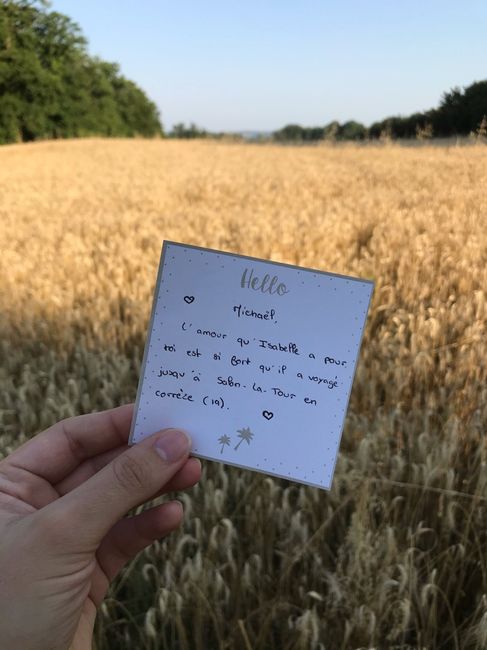 Hello
Michaël,
L'amour qu'Isabelle a pour
toi est si fort qu'il a voyagé
jusqu'à Sabn-La-Tour en
corrèze (19).